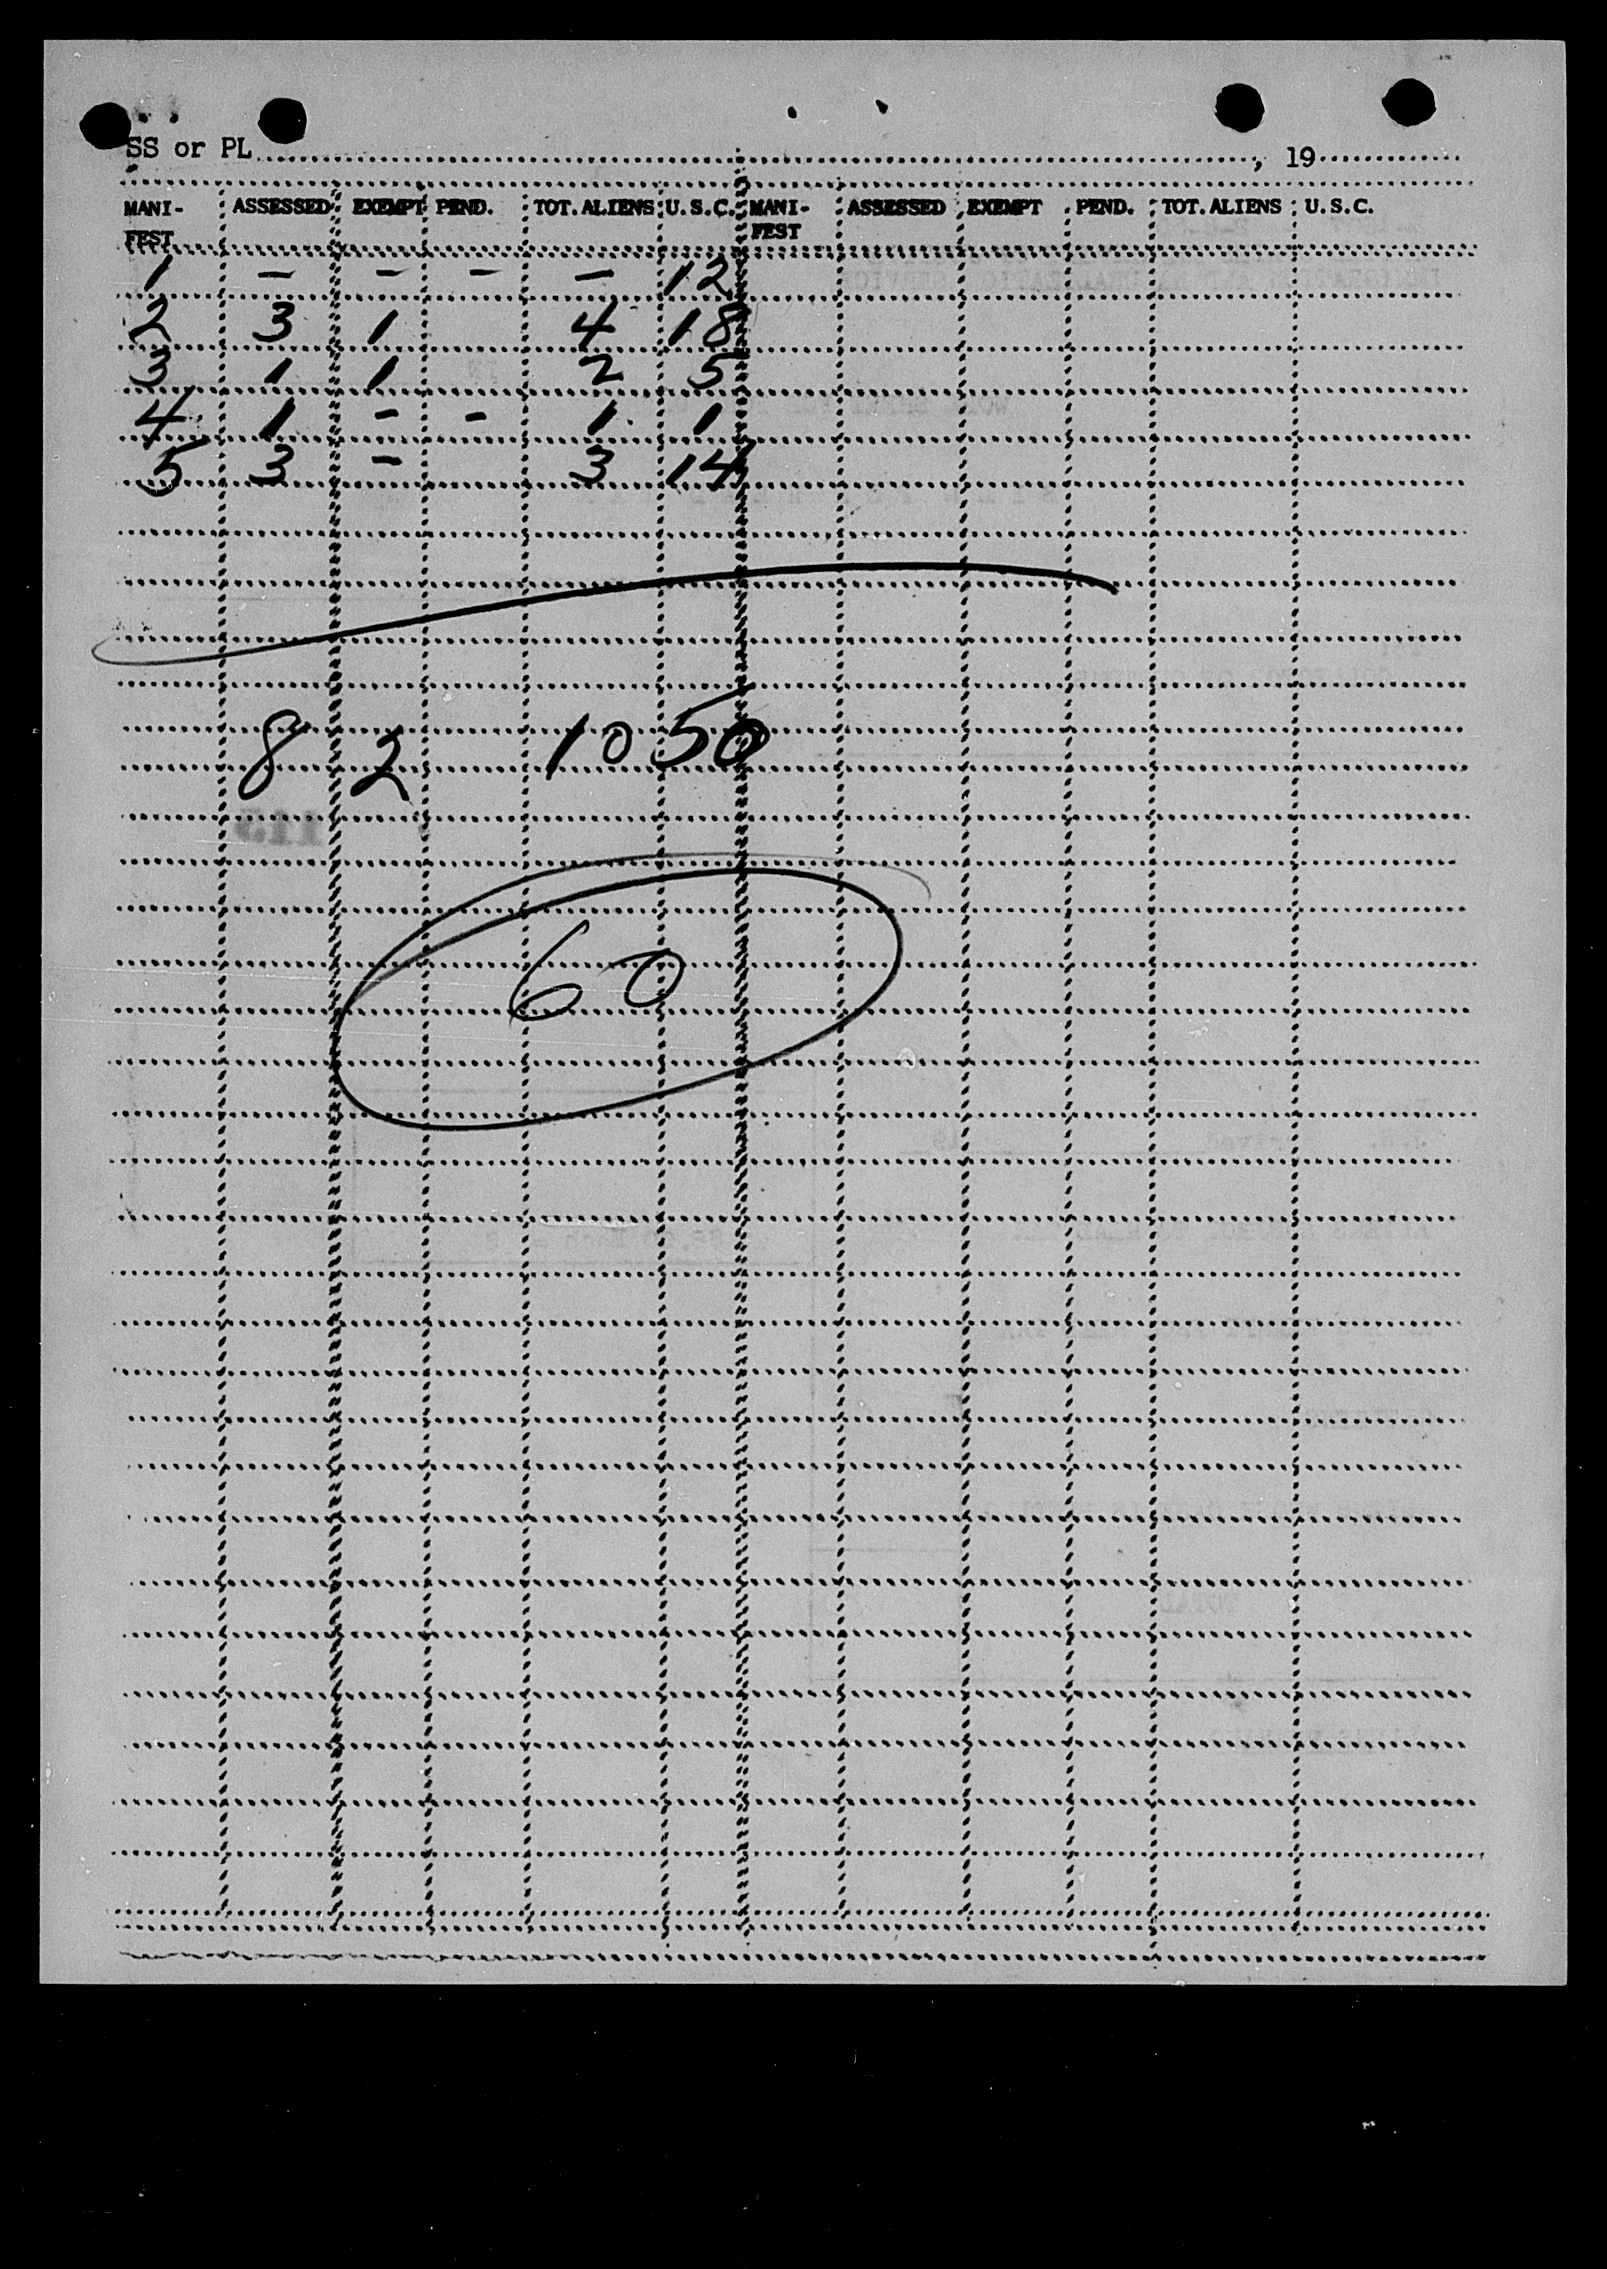 SS or PL , 19
MANI-FEST ASSESSED EXEMPT PEND. TOT. ALIENS U.S.C. MANI-FEST ASSESSED EXEMPT PEND. TOT. ALIENS U.S.C.
1 - - - - 12
2 3 1 4 18
3 1 1 2 5
4 1 - - 1 1
5 3 - 3 14
8 2 10 50
60